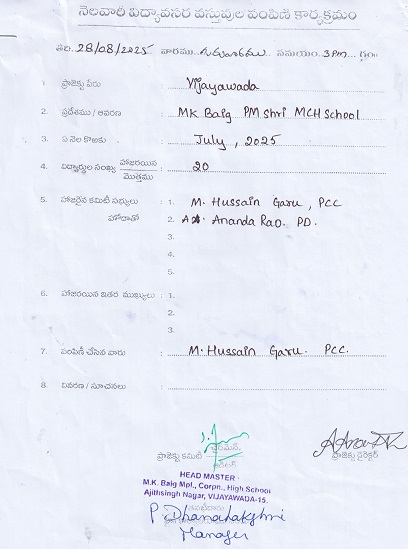 నెలవారీ విద్యావసర వస్తువుల పంపిణి కార్యక్రమం
తేది. 28/08/2025 వారము.. గురువారము .. సమయం. 3PM .. గం॥
1. ప్రాజెక్టు పేరు Vijayawada
2. ప్రదేశము / ఆవరణ : MK Baig PM Shri MCH School
3. ఏ నెల కొఱకు : July, 2025
4. విద్యార్థుల సంఖ్య హాజరయిన / మొత్తము : 20
5. హాజరైన కమిటీ సభ్యులు : 1. M. Hussain Garu, PCC
హోదాతో 2. Ananda Rao. PD.
3.
4.
5.
6. హాజరయిన ఇతర ముఖ్యులు : 1.
2.
3.
7. పంపిణీ చేసిన వారు : M. Hussain Garu. PCC.
8. వివరణ / సూచనలు :
ప్రాజెక్టు కమిటీ ఛైర్మన్, ప్రాజెక్టు డైరెక్టర్
HEAD MASTER
M.K. Baig Mpl., Corpn., High School
Ajithsingh Nagar, VIJAYAWADA-15.
P Dhanalakshmi
Manager